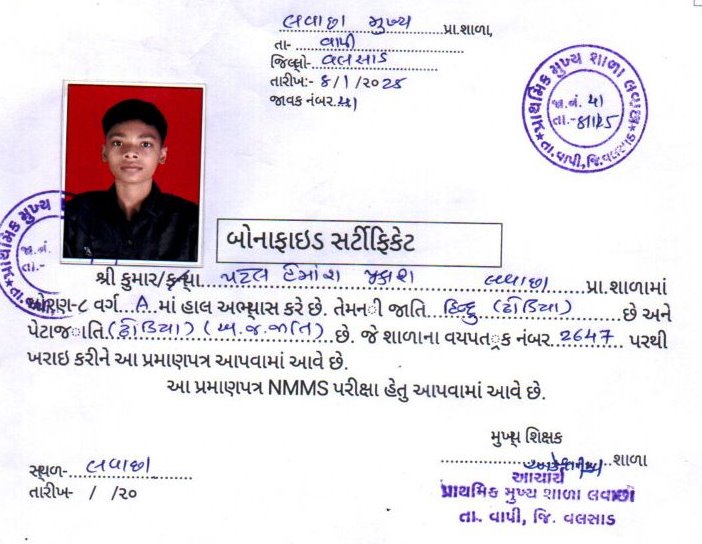 લવાછા મુખ્ય પ્રા.શાળા,
તા- વાપી
જિલ્લો- વલસાડ
તારીખ:- ૪/૧/૨૦૨૫
જાવક નંબર. ૪૧
પ્રાથમિક મુખ્ય શાળા લવાછા
જા.નં. ૪૧
તા.- ૪/૧/૨૫
તા. વાપી, જિ. વલસાડ
પ્રાથમિક મુખ્ય
જા.નં.
તા.-
બોનાફાઇડ સર્ટીફિકેટ
શ્રી કુમાર/કન્યા પટેલ હિમાંશ લવાછા પ્રા.શાળામાં
ધોરણ-૮ વર્ગ A માં હાલ અભ્યાસ કરે છે. તેમની જાતિ હિન્દુ (ઢોડિયા) છે અને
પેટાજાતિ (ઢોડિયા) (અ.જ.જાતિ) છે. જે શાળાના વયપત્રક નંબર 2647 પરથી
ખરાઇ કરીને આ પ્રમાણપત્ર આપવામાં આવે છે.
આ પ્રમાણપત્ર NMMS પરીક્ષા હેતુ આપવામાં આવે છે.
મુખ્ય શિક્ષક
શાળા
સ્થળ- લવાછા
તારીખ- / /૨૦
આચાર્ય
પ્રાથમિક મુખ્ય શાળા લવાછા
તા. વાપી, જિ. વલસાડ